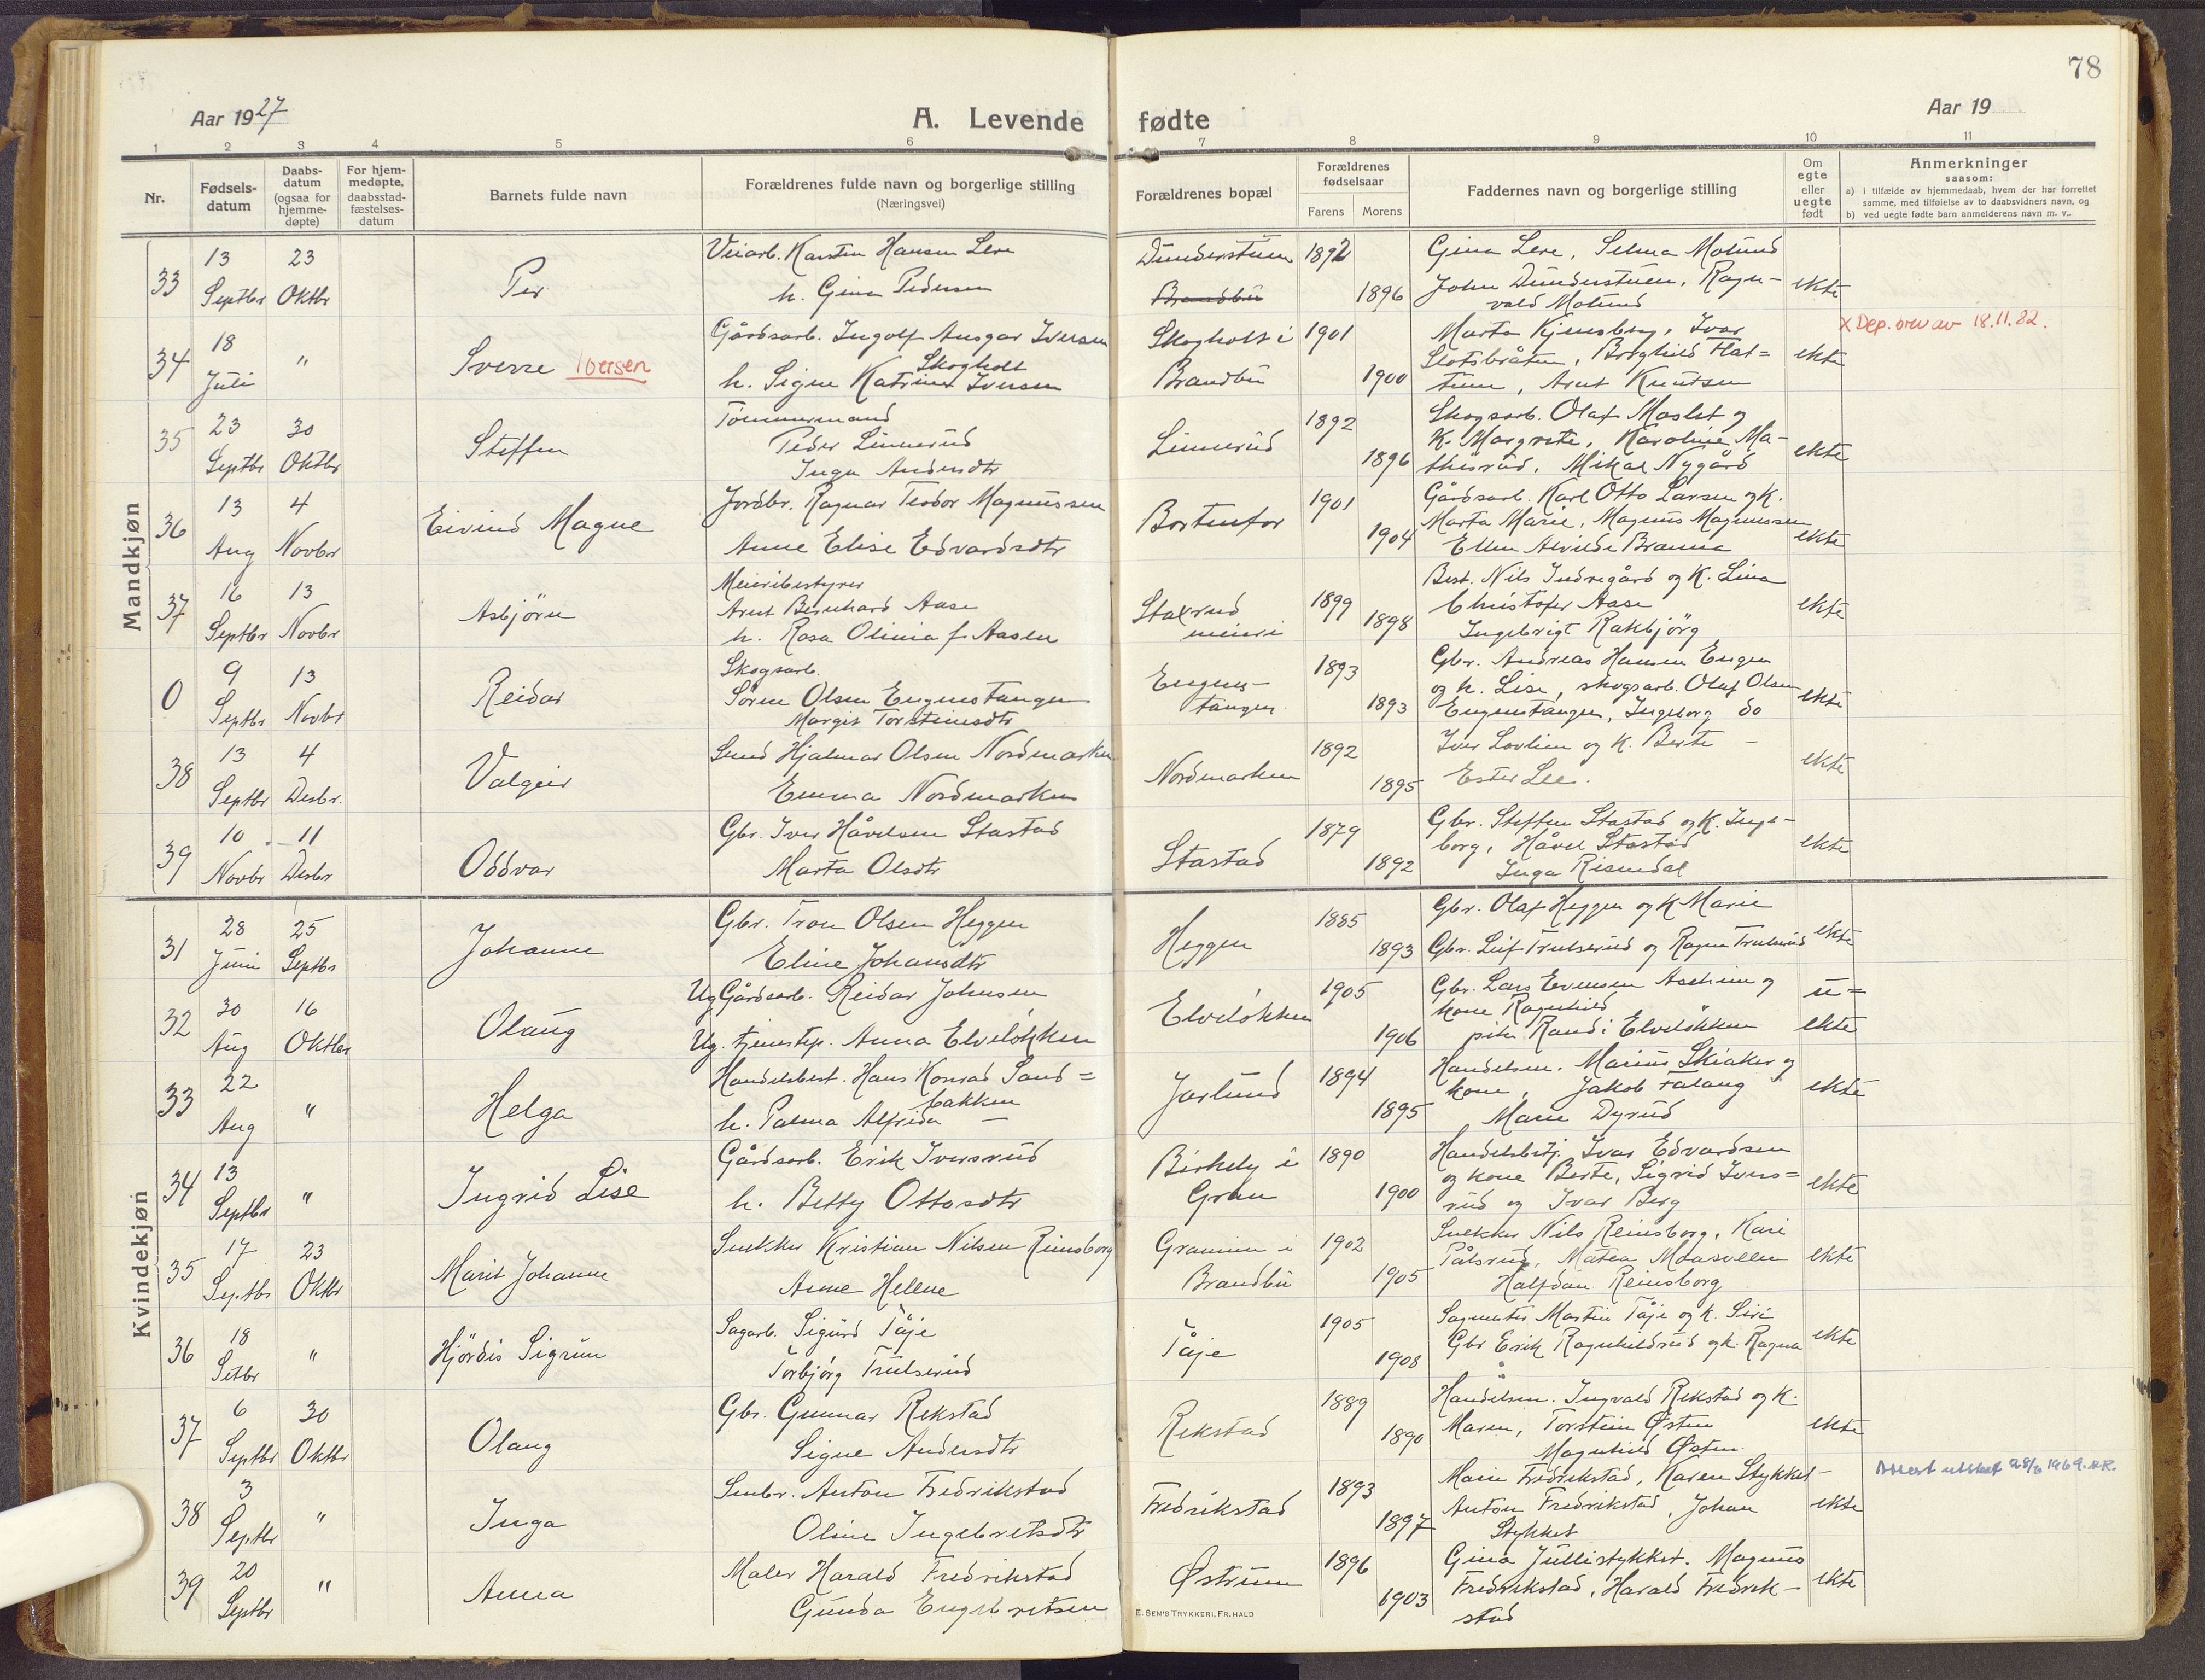 78
Aar 1927
A. Levende fødte
Aar 19
1 2 3 4 5 6 7 8 9 10 11
Nr.
Fødsels-
datum
Daabs-
datum
(ogsaa for
hjemme-
døpte)
For hjem-
medøpte,
daabsstad-
fæstelses-
datum
Barnets fulde navn
Forældrenes fulde navn og borgerlige stilling
(Næringsvei)
Forældrenes bopæl
Forældrenes
fødselsaar
Farens Morens
Faddernes navn og borgerlige stilling
Om
egte
eller
uegte
født
Anmerkninger
saasom:
a) i tilfælde av hjemmedaab, hvem der har forrettet
samme, med tilføielse av to daabsvidners navn, og
b) ved uegte fødte barn anmelderens navn m. v..
Mandkjøn
33
13 Septbr
23 Oktbr
Per
Veiarb. Karsten Hansen Lere
h. Gina Pedersen
Dunderstuen
Brandbu
1892
1896
Gina Lere, Selma Molund
John Dunderstuen, Ragn-
vald Molund
ekte
34
18 Juli
"
Sverre Iversen
Gårdsarb. Ingolf Ansgar Iversen
Skogholt
h. Signe Katrine Iversen
Skogholt i
Brandbu
1901
1900
Marta Kjensberg, Ivar
Slotsbråten, Borghild Flat=
tuen, Arnt Knutsen
ekte
x Dep. brev av 18.11.82.
35
23 Septbr
30 Oktbr
Steffen
Tömmermand
Peder Linnerud
Inga Andersdtr
Linnerud
1892
1896
Skogsarb. Olaf Moslet og
K. Margrete, Karoline Ma-
thisrud, Mikal Nygård
ekte
36
13 Aug
4 Novbr
Eivind Magne
Jordbr. Ragnar Teodor Magnussen
Anne Elise Edvardsdtr
Bortenfor
1901
1904
Gårdsarb. Karl Otto Larsen og K.
Marta Marie, Magnus Magnussen
Ellen Alvilde Branna
ekte
37
16 Septbr
13 Novbr
Asbjörn
Meieribestyrer
Arnt Bernhard Aase
h. Rosa Olinia f. Aasen
Staxrud
meieri
1899
1898
Best. Nils Indregård og K. Lina
Christofer Aase
Ingebrigt Rakbjörg
ekte
0
9 Septbr
13 Novbr
Reidar
Skogsarb.
Sören Olsen Engnestangen
Margit Torsteinsdtr
Engnes-
tangen
1893
1893
Gbr. Andreas Hansen Engen
og h. Lise, skogsarb. Olaf Olsen
Engnestangen, Ingeborg do
ekte
38
13 Septbr
4 Desbr.
Valgeir
Smed Hjalmar Olsen Nordmarken
Emma Nordmarken
Nordmarken
1892
1895
Iver Lovlien og K. Berte -
Ester Lee.
ekte
39
10 Novbr
11 Desbr
Oddvar
Gbr. Iver Håvelsen Stastad
Marta Olsdtr
Stastad
1879
1892
Gbr. Steffen Stastad og K. Inge-
borg, Håvel Stastad
Inga Risendal
ekte
Kvindekjøn
31
28 Juni
25 Septbr
Johanne
Gbr. Tron Olsen Heggen
Eline Johansdtr
Heggen
1885
1893
Gbr. Olaf Heggen og K Marie
Gbr. Leif Trulserud og Ragna Trulserud
ekte
32
30 Aug
16 Oktbr
Olaug
Ug Gårdsarb. Reidar Johnsen
Ug. tjenestep. Anna Elvelökken
Elvelökken
1905
1906
Gbr. Lars Evensen Aschim og
kone Ragnhild
pike Randi Elvelökken
u=
ekte
33
22 Aug
"
Helga
Handelsbest. Hans Konrad Sand=
bakken
h. Palma Alfrida —
Jarlund
1894
1895
Handelsm. Marius Skiaker og
kone, Jakob Falang
Marie Dyrud
ekte
34
13 Septbr
"
Ingrid Lise
Gårdsarb. Erik Iversrud
h. Betty Ottosdtr
Birkely i
Gran
1890
1900
Handelsbetj. Ivar Edvardsen
og kone Berte, Sigrid Ivers=
rud og Ivar Berg
ekte
35
17 Septbr
23 Oktbr
Marit Johanne
Snekker Kristian Nilsen Reinsborg
Anne Helene
Granum i
Brandbu
1902
1905
Snekker Nils Reinsborg, Kari
Pålsrud, Matea Moasveen
Halfdan Reinsborg
ekte
36
18 Setbr
"
Hjördis Sigrun
Sagarb. Sigurd Tåje
Torbjörg Trulserud
Tåje
1905
1908
Sagmester Martin Tåje og K. Siri
Gbr Erik Ragnhildrud og K. Ragna
ekte
37
6 Septbr
30 Oktbr
Olaug
Gbr. Gunnar Rekstad
Signe Andersdtr
Rekstad
1889
1890
Handelsm. Ingvald Rekstad og K.
Maren, Torstein Østen
Magnhild Østen
ekte
38
3 Septbr
"
Inga
Smbr. Anton Fredrikstad
Oline Ingebretsdtr
Fredrikstad
1893
1897
Marie Fredrikstad, Karen Stykket-
Anton Fredrikstad, Johan
Stykket
ekte
Attest utstedt 28/8 1969.
39
20 Septbr
"
Anna
Maler Harald Fredrikstad
Gunda Engebretsen
Østruen
1896
1903
Gina Jullistykket. Magnus
Fredrikstad, Harald Fredrik-
stad
ekte
E. SEM'S TRYKKERI, FR.HALD